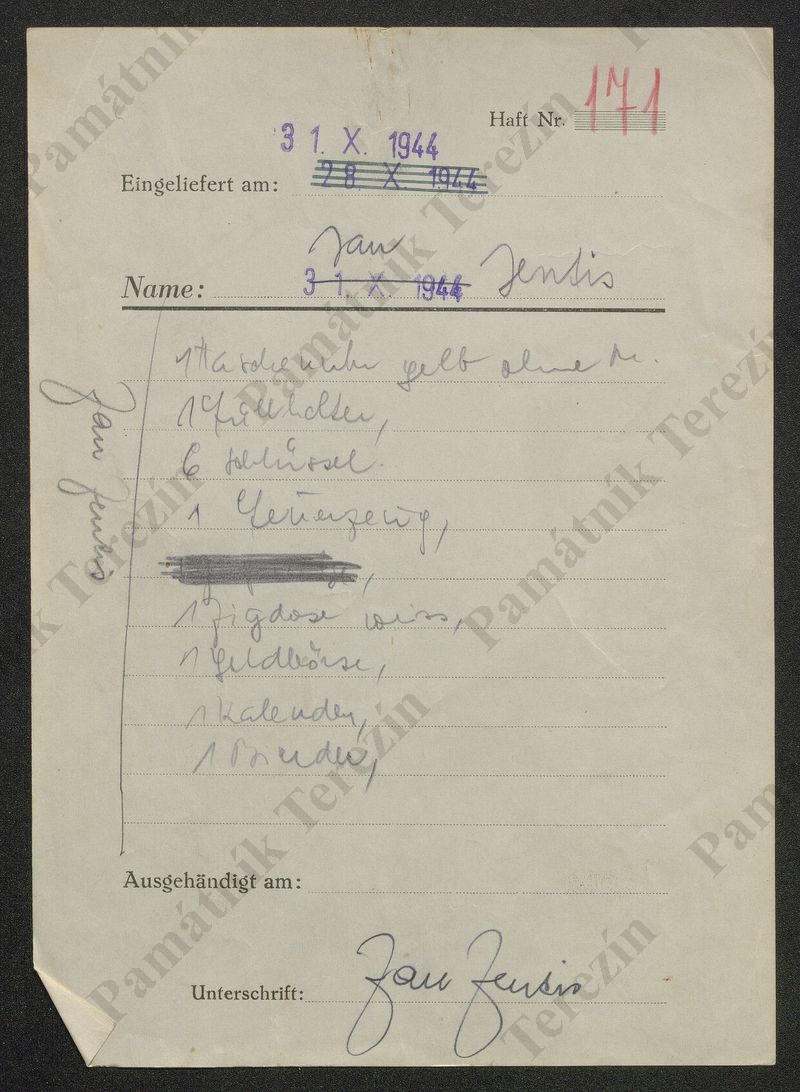 Haft Nr. 171
31. X. 1944
Eingeliefert am: 28. X. 1944
Jan Jentis
Name: 31. X. 1944
1 Taschenuhr gelb ohne
1 Füllhalter,
6 Schlüssel.
1 Feuerzeug,
1 Zigdose weiss,
1 Geldbörse,
1 Kalender,
1 Binder,
Jan Jentis
Ausgehändigt am:
Unterschrift: Jan Jentis
Památník Terezín